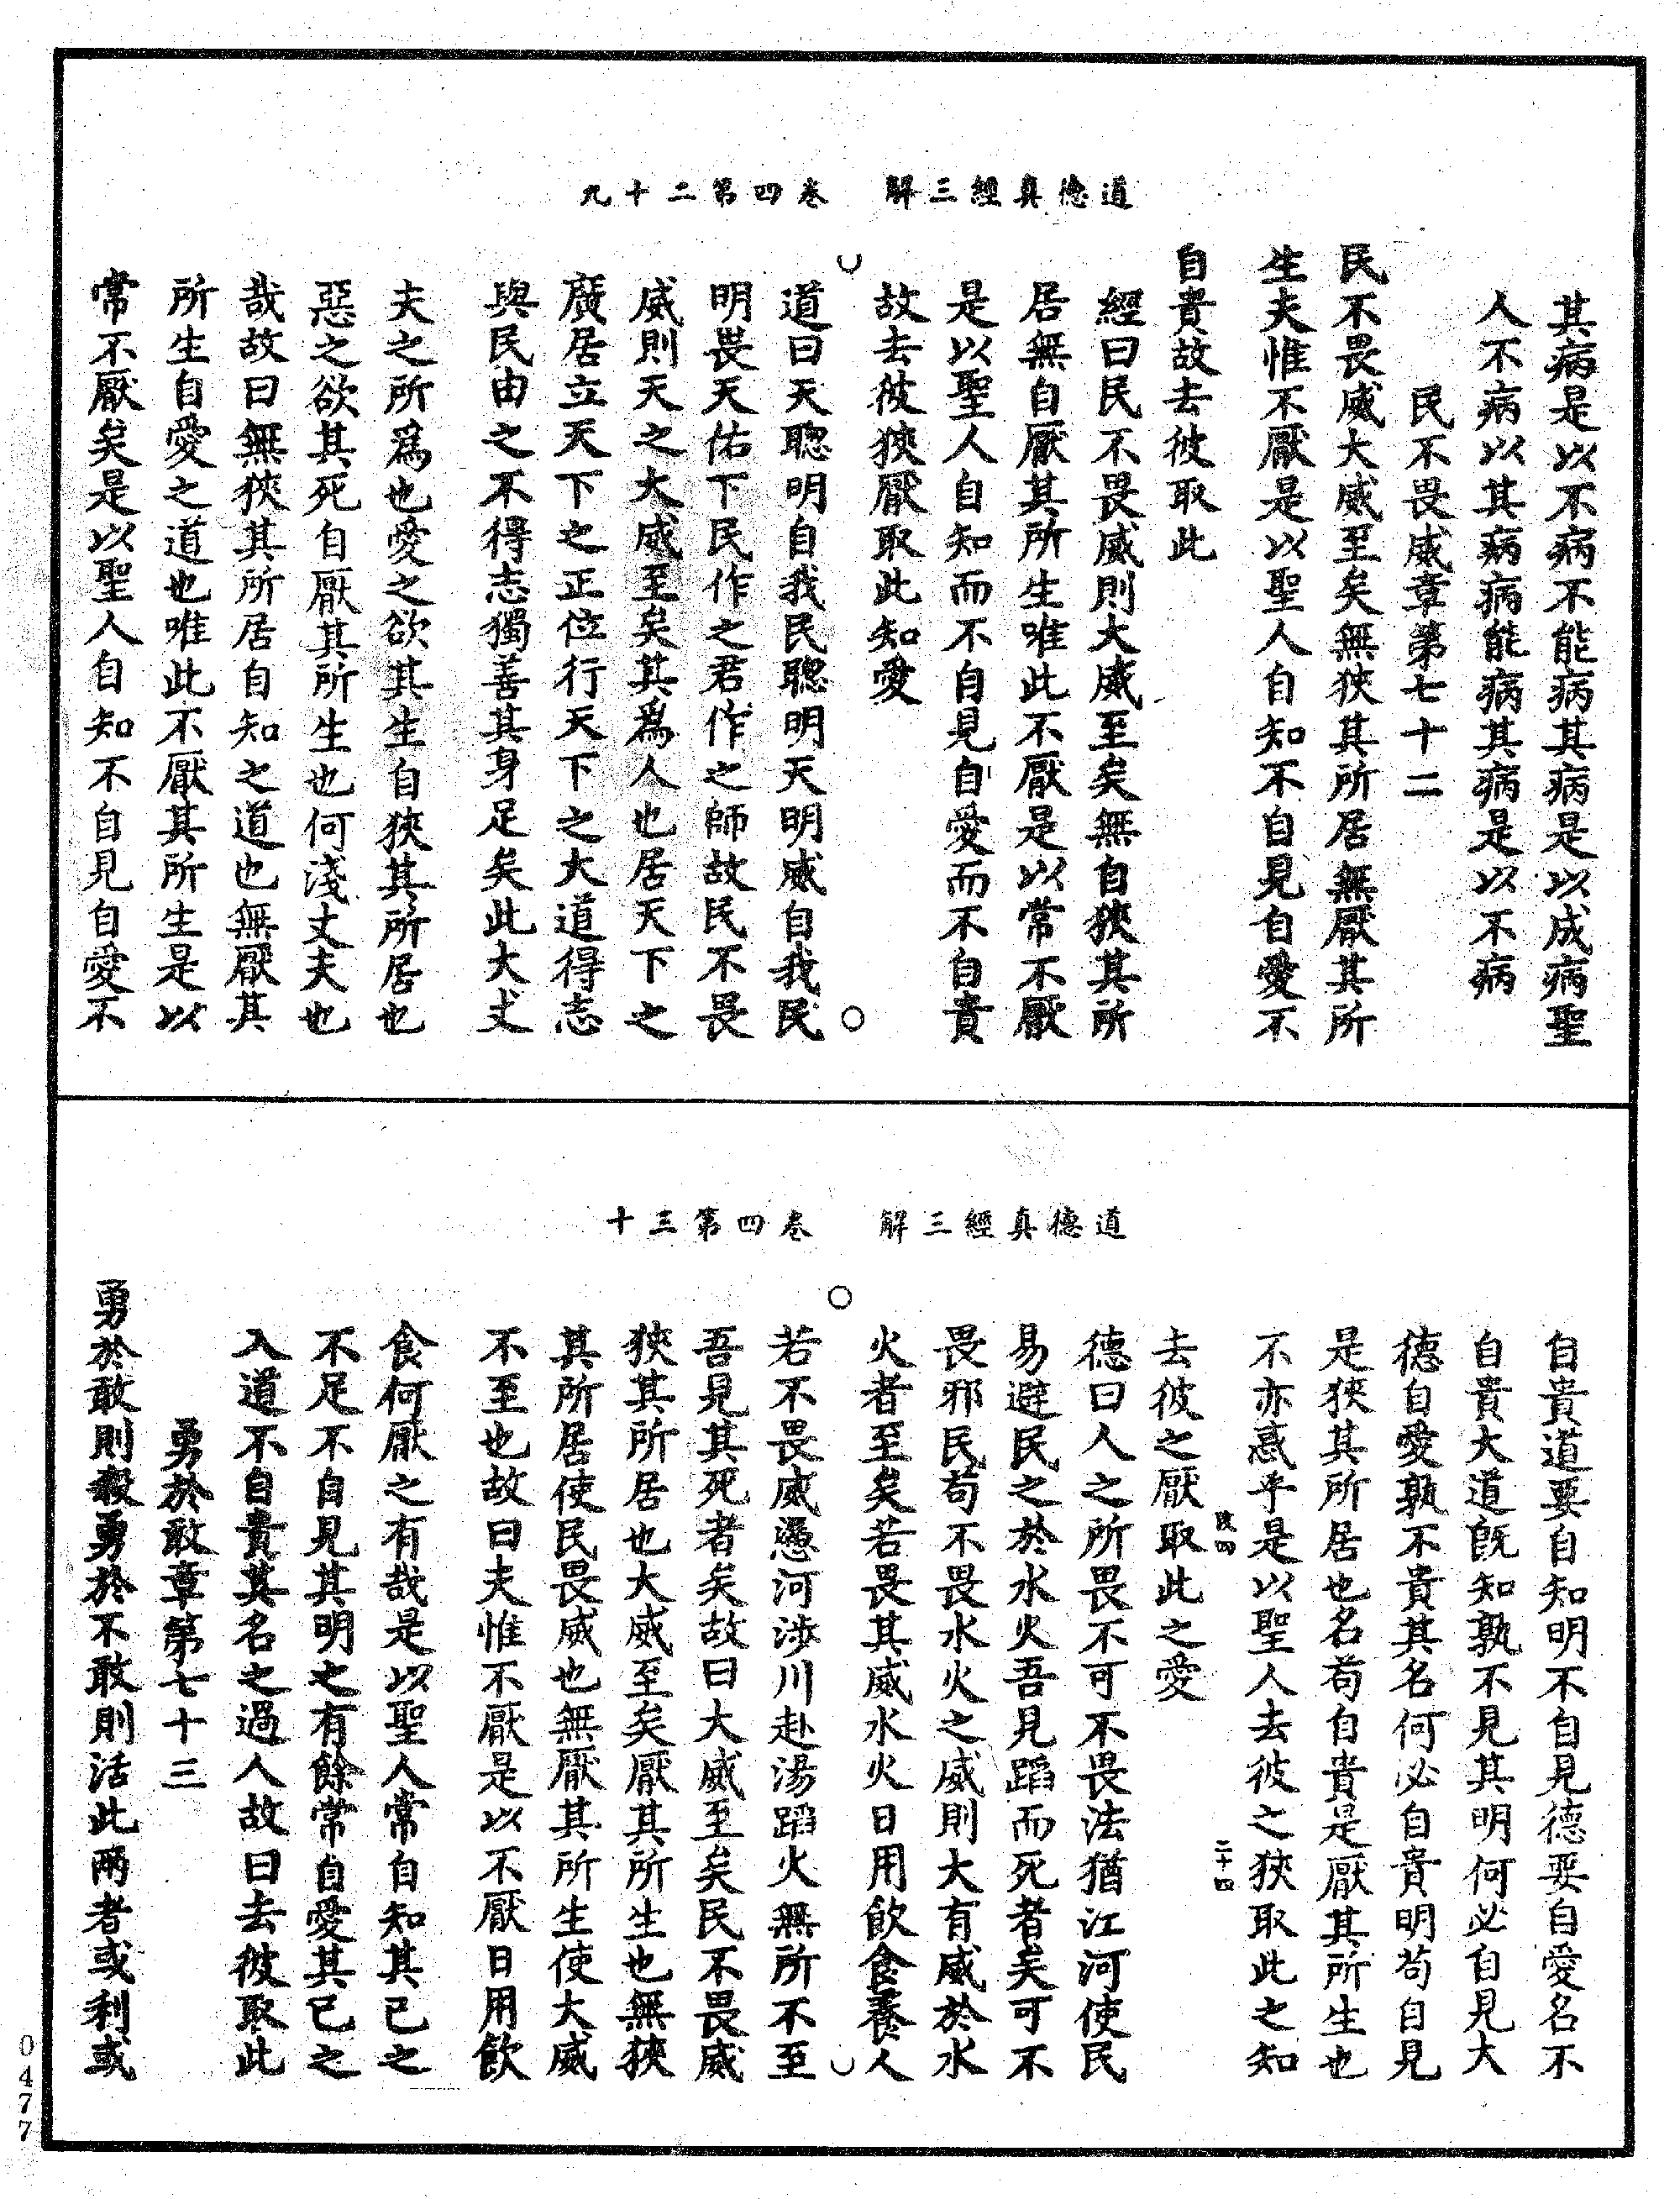 道德真經三解　卷四第二十九
其病是以不病不能病其病是以成病聖
人不病以其病病能病其病是以不病
民不畏威章第七十二
民不畏威大威至矣無狹其所居無厭其所
生夫惟不厭是以聖人自知不自見自愛不
自貴故去彼取此
經曰民不畏威則大威至矣無自狹其所
居無自厭其所生唯此不厭是以常不厭
是以聖人自知而不自見自愛而不自貴
故去彼狹厭取此知愛
道曰天聰明自我民聰明天明威自我民
明畏天佑下民作之君作之師故民不畏
威則天之大威至矣其為人也居天下之
廣居立天下之正位行天下之大道得志
與民由之不得志獨善其身足矣此大丈
夫之所為也愛之欲其生自狹其所居也
惡之欲其死自厭其所生也何淺丈夫也
哉故曰無狹其所居自知之道也無厭其
所生自愛之道也唯此不厭其所生是以
常不厭矣是以聖人自知不自見自愛不
道德真經三解　卷四第三十
自貴道要自知明不自見德要自愛名不
自貴大道既知孰不見其明何必自見大
德自愛孰不貴其名何必自貴明苟自見
是狹其所居也名苟自貴是厭其所生也
不亦惑乎是以聖人去彼之狹取此之知
二十四
去彼之厭取此之愛
德曰人之所畏不可不畏法猶江河使民
易避民之於水火吾見蹈而死者矣可不
畏邪民苟不畏水火之威則大有威於水
火者至矣若畏其威水火日用飲食養人
若不畏威憑河涉川赴湯蹈火無所不至
吾見其死者矣故曰大威至矣民不畏威
狹其所居也大威至矣厭其所生也無狹
其所居使民畏威也無厭其所生使大威
不至也故曰夫惟不厭是以不厭日用飲
食何厭之有哉是以聖人常自知其已之
不足不自見其明之有餘常自愛其已之
入道不自貴其名之過人故曰去彼取此
勇於敢章第七十三
勇於敢則殺勇於不敢則活此兩者或利或
0477